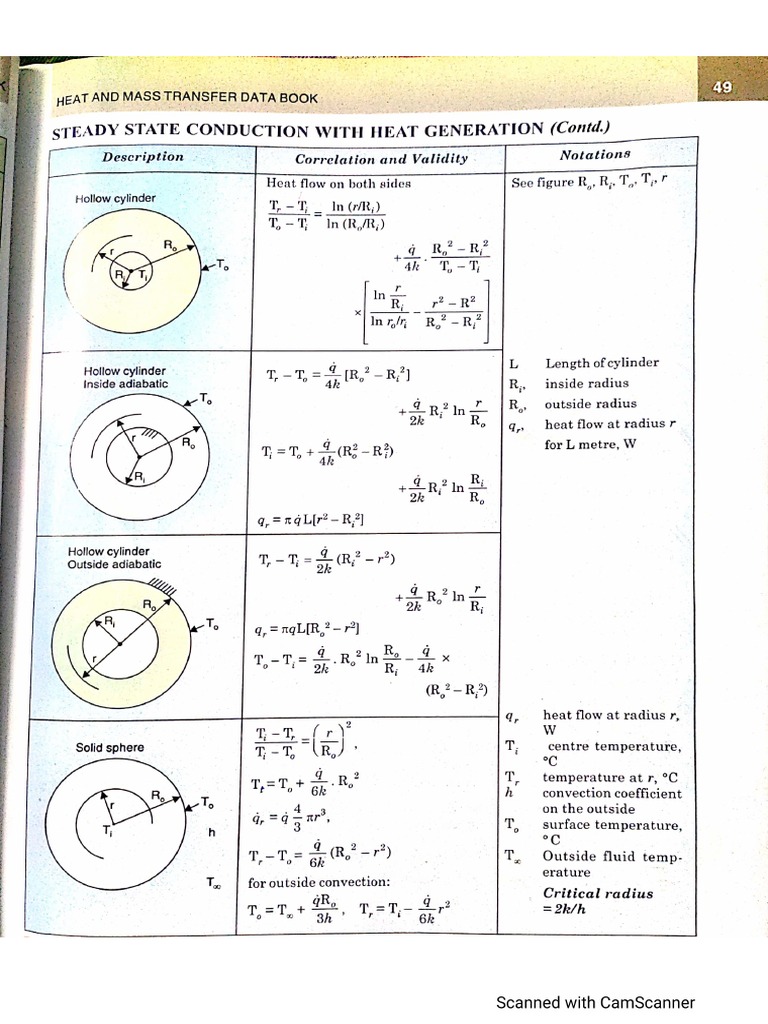 HEAT AND MASS TRANSFER DATA BOOK
49
STEADY STATE CONDUCTION WITH HEAT GENERATION (Contd.)
Description
Correlation and Validity
Notations
Hollow cylinder
r
R_o
T_o
R_i
T_i
Heat flow on both sides
(T_r – T_i)/(T_o – T_i) = ln (r/R_i)/ln (R_o/R_i)
+ q̇/4k . (R_o² – R_i²)/(T_o – T_i)
× [ (ln r/R_i)/(ln r_o/r_i) – (r² – R²)/(R_o² – R_i²) ]
See figure R_o, R_i, T_o, T_i, r
Hollow cylinder
Inside adiabatic
T_o
r
R_o
R_i
T_r – T_o = q̇/4k [R_o² – R_i²]
+ q̇/2k R_i² ln r/R_o
T_i = T_o + q̇/4k (R_o² – R_i²)
+ q̇/2k R_i² ln R_i/R_o
q_r = π q̇ L[r² – R_i²]
L Length of cylinder
R_i, inside radius
R_o, outside radius
q_r, heat flow at radius r
for L metre, W
Hollow cylinder
Outside adiabatic
R_o
R_i
T_o
r
T_r – T_i = q̇/2k (R_i² – r²)
+ q̇/2k R_o² ln r/R_i
q_r = πqL[R_o² – r²]
T_o – T_i = q̇/2k . R_o² ln R_o/R_i – q̇/4k ×
(R_o² – R_i²)
Solid sphere
r
R_o
T_o
T_i
h
T_∞
(T_i – T_r)/(T_i – T_o) = (r/R_o)²,
T_t = T_o + q̇/6k . R_o²
q̇_r = q̇ 4/3 πr³,
T_r – T_o = q̇/6k (R_o² – r²)
for outside convection:
T_o = T_∞ + q̇R_o/3h , T_r = T_i – q̇/6k r²
q_r heat flow at radius r,
W
T_i centre temperature,
°C
T_r temperature at r, °C
h convection coefficient
on the outside
T_o surface temperature,
°C
T_∞ Outside fluid temp-
erature
Critical radius
= 2k/h
Scanned with CamScanner